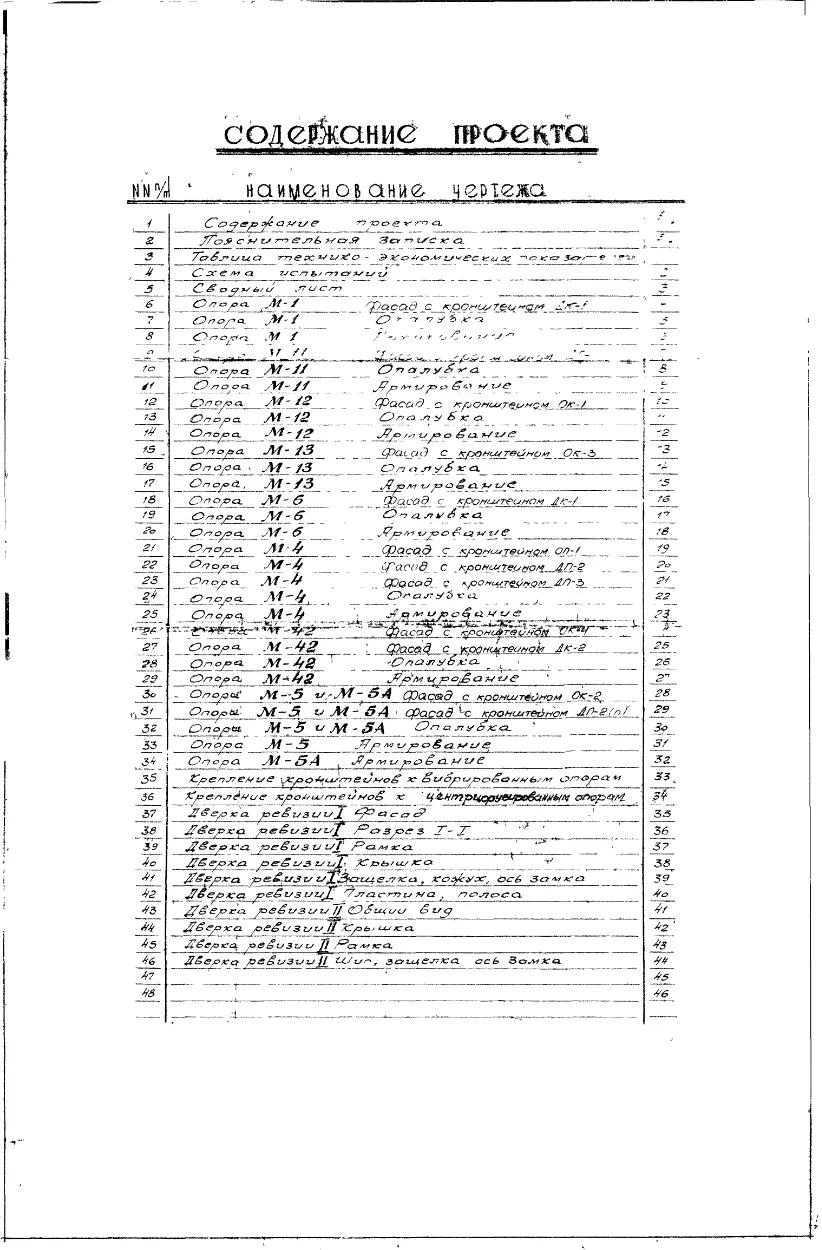 содержание проекта
NN п/п наименование чертежа
1 Содержание проекта
2 Пояснительная записка
3 Таблица технико-экономических
4 Схема испытаний
5 Сводный лист
6 Опора М-1 Фасад с кронштейном
7 Опора М-1 Опалубка
8 Опора М 1
10 Опора М-11 Опалубка 8
11 Опора М-11 Армирование
12 Опора М-12 Фасад с кронштейном Ок-1
13 Опора М-12 Опалубка
14 Опора М-12 Армирование
15 Опора М-13 Фасад с кронштейном Ок-3
16 Опора М-13 Опалубка
17 Опора М-13 Армирование
18 Опора М-6 Фасад с кронштейном Дк-1 16
19 Опора М-6 Опалубка 17
20 Опора М-6 Армирование 18
21 Опора М-4 Фасад с кронштейном оп-1 19
22 Опора М-4 Фасад с кронштейном ДП-2 20
23 Опора М-4 Фасад с кронштейном ДП-3 21
24 Опора М-4 Опалубка 22
25 Опора М-4 Армирование 23
26 М-42 Фасад с кронштейном
27 Опора М-42 Фасад с кронштейном Дк-2 25
28 Опора М-42 Опалубка 26
29 Опора М-42 Армирование
30 Опоры М-5 и М-5А Фасад с кронштейном Ок-2 28
31 Опоры М-5 и М-5А Фасад с кронштейном ДП-2(п) 29
32 Опоры М-5 и М-5А Опалубка 30
33 Опора М-5 Армирование 31
34 Опора М-5А Армирование 32
35 Крепление кронштейнов к вибрированным опорам 33
36 Крепление кронштейнов к опорам 34
37 Дверка ревизии I Фасад 35
38 Дверка ревизии I Разрез I-I 36
39 Дверка ревизии I Рамка 37
40 Дверка ревизии I Крышка 38
41 Дверка ревизии I Защелка, кожух, ось замка 39
42 Дверка ревизии I Пластина, полоса 40
43 Дверка ревизии II Общий вид 41
44 Дверка ревизии II Крышка 42
45 Дверка ревизии II Рамка 43
46 Дверка ревизии II защелка ось Замка 44
47 45
48 46